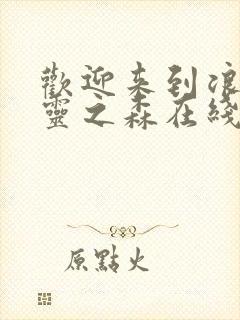 歡迎来到浪
靈之森在綫
原點火